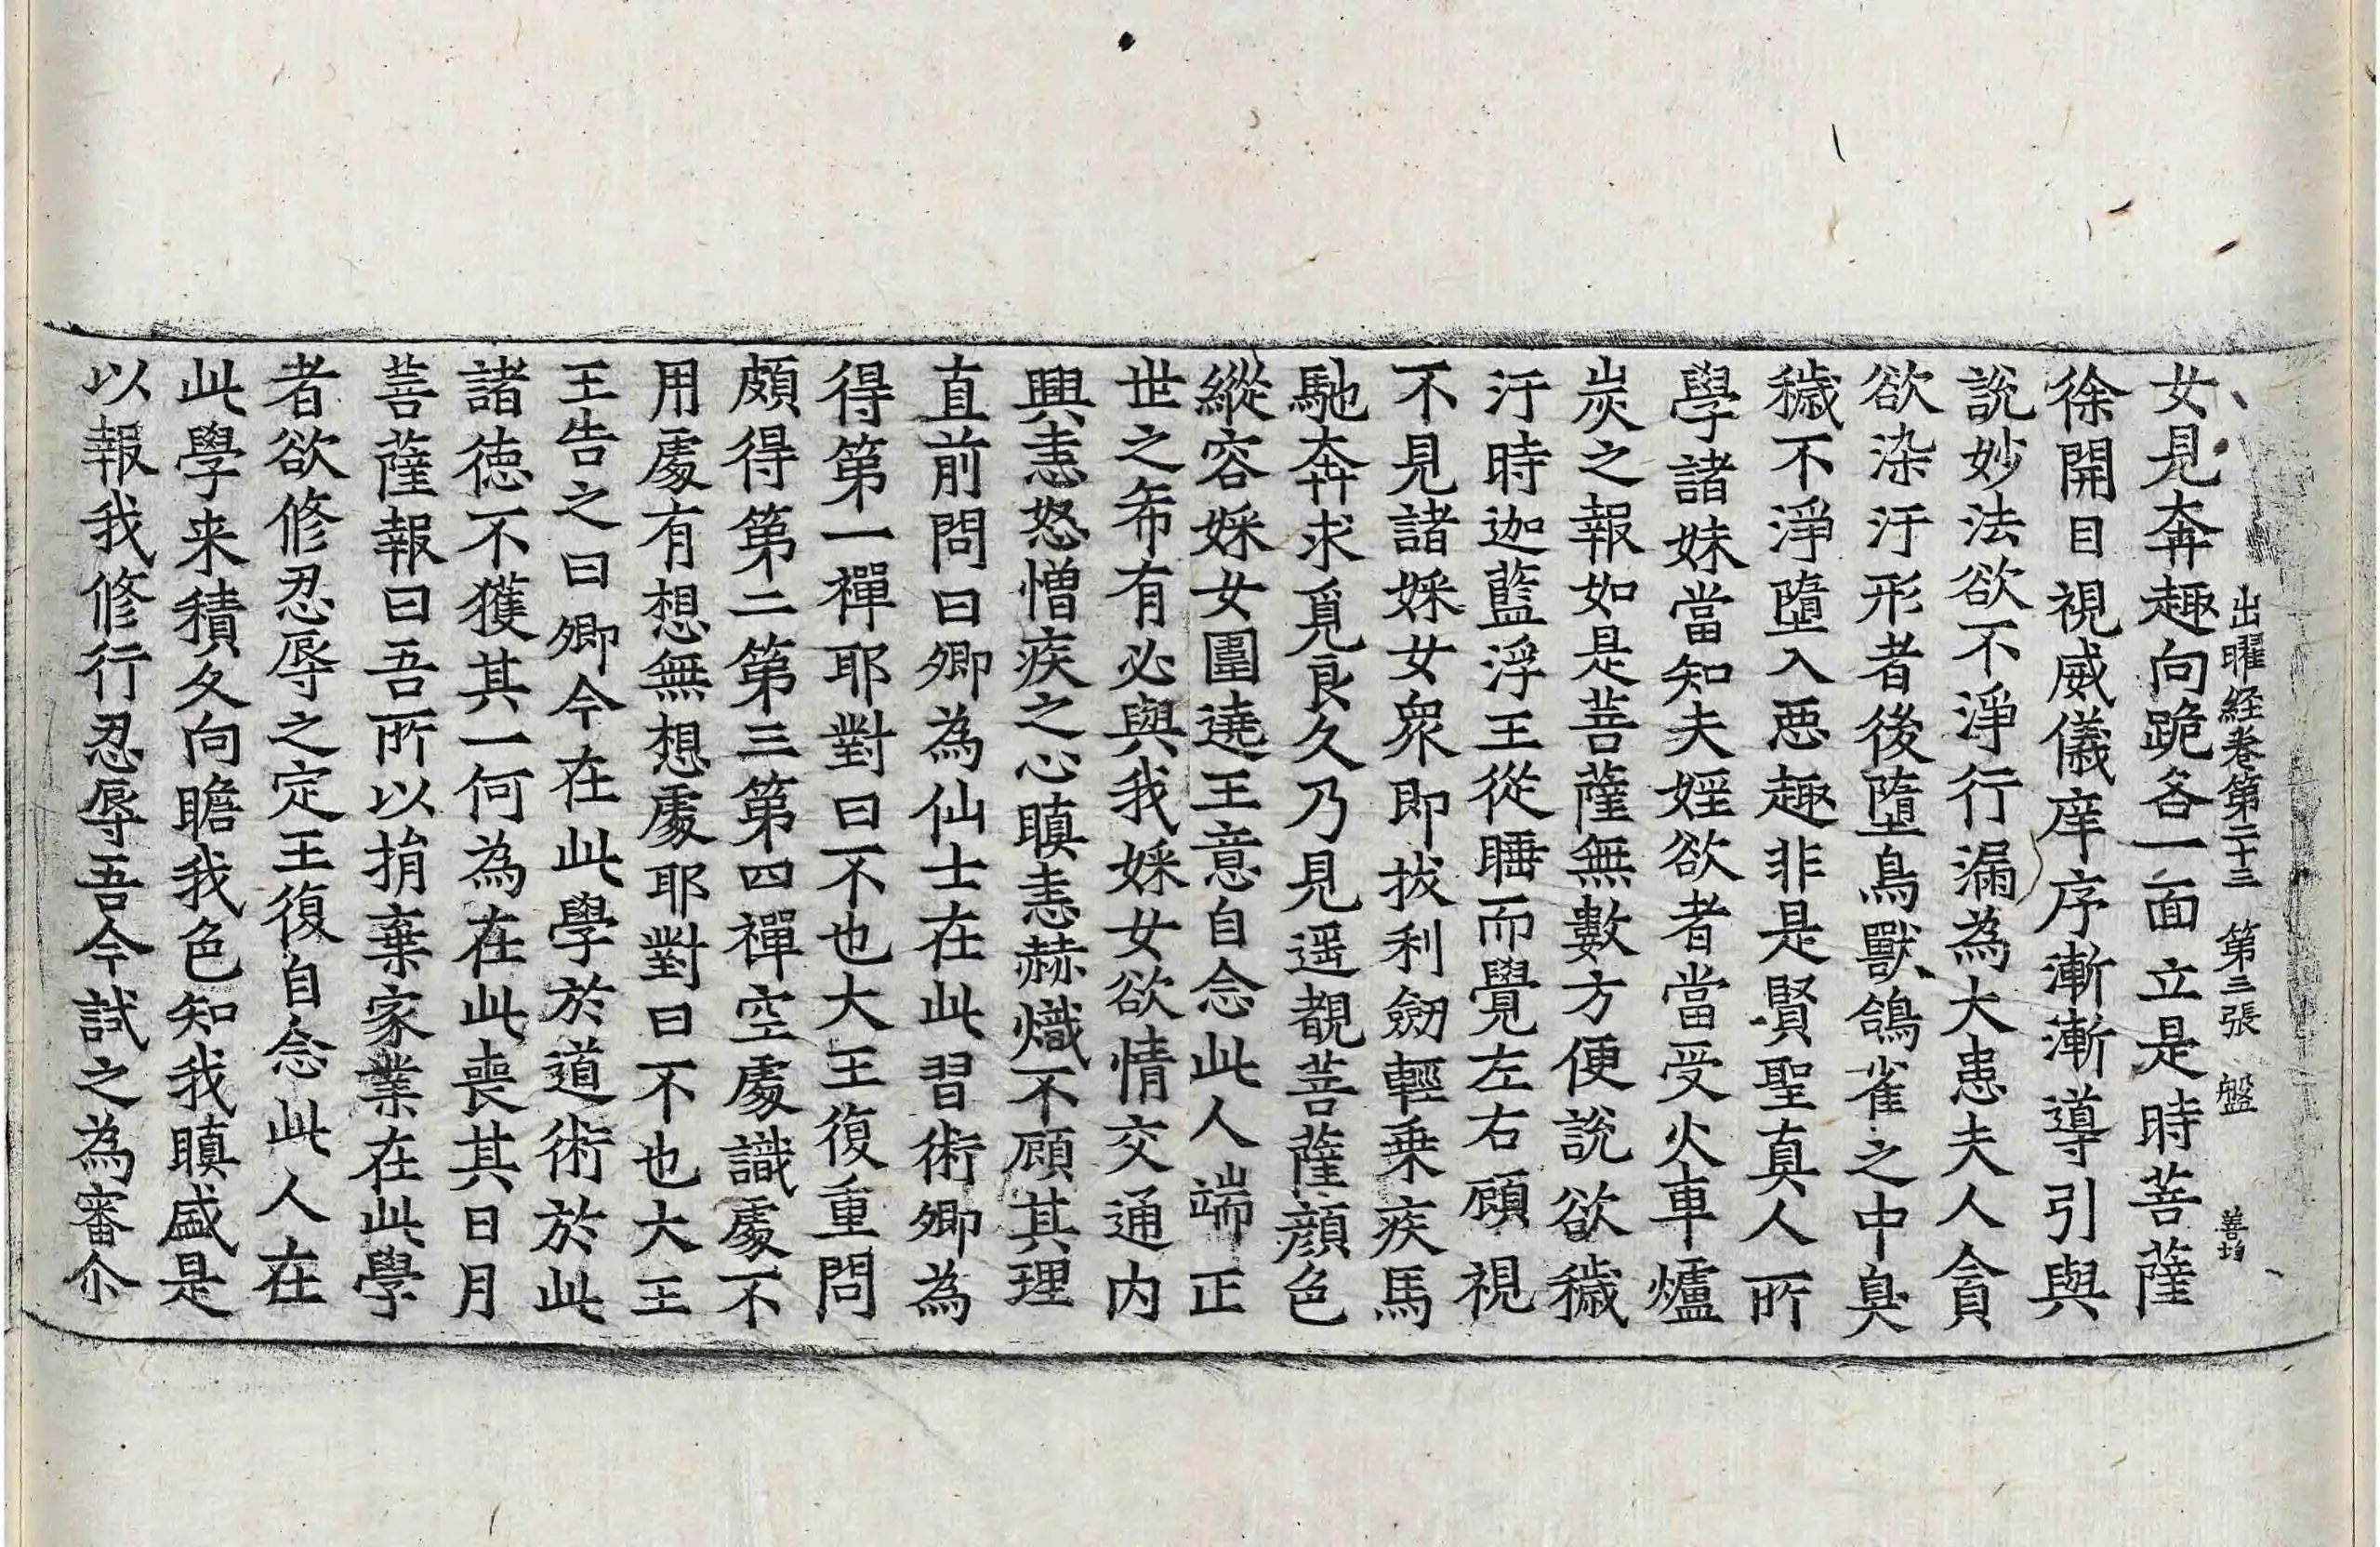 出曜経卷第二十三　第三張　盤　善均
女見奔趣向跪各一面立是時菩薩
徐開目視威儀庠序漸漸導引與
說妙法欲不淨行漏為大患夫人貪
欲染汙形者後墮鳥獸鴿雀之中臭
穢不淨墮入惡趣非是賢聖真人所
學諸妹當知夫婬欲者當受火車爐
炭之報如是菩薩無數方便說欲穢
汙時迦藍浮王從睡而覺左右顧視
不見諸婇女眾即拔利劒輕乗疾馬
馳奔求覓良久乃見遥覩菩薩顏色
縱容婇女圍遶王意自念此人端正
世之希有必與我婇女欲情交通内
興恚怒憎疾之心瞋恚赫熾不顧其理
直前問曰卿為仙士在此習術卿為
得第一禪耶對曰不也大王復重問
頗得第二第三第四禪空處識處不
用處有想無想處耶對曰不也大王
王告之曰卿今在此學於道術於此
諸徳不獲其一何為在此喪其日月
菩薩報曰吾所以捐棄家業在此學
者欲修忍辱之定王復自念此人在
此學来積久向瞻我色知我瞋盛是
以報我修行忍辱吾今試之為審尒